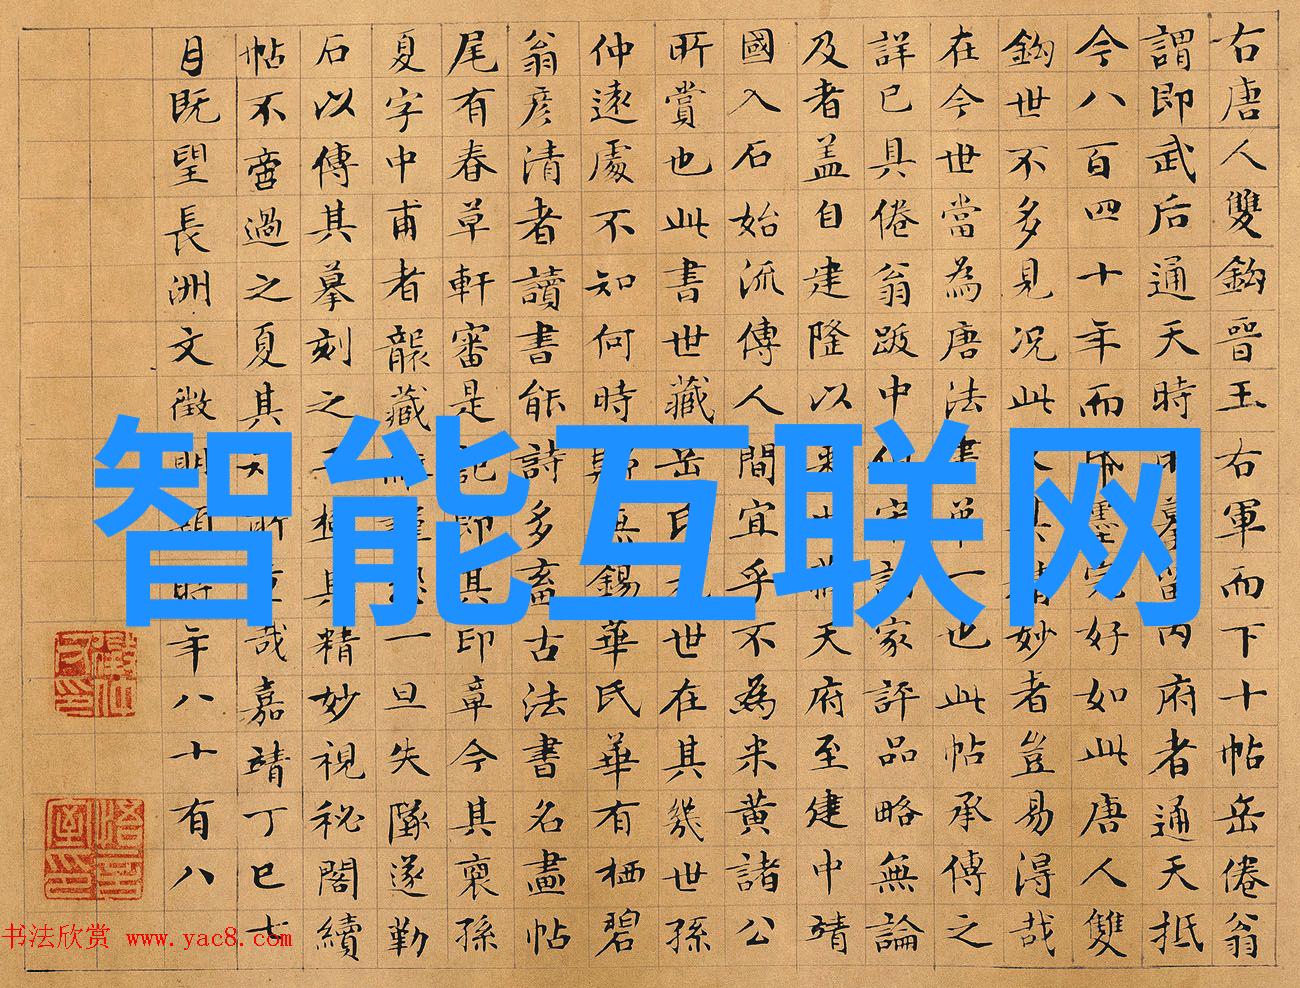 智能互联网
右唐人雙鈎晉王右軍而下十帖岳倦翁
謂即武后通天時所摹留內府者通天抵
今八百四十年而紙墨完好如此唐人雙
鈎世不多見況此又其精妙者豈易得哉
在今世當為唐法書第一也此帖承傳之
詳已具倦翁跋中家評品略無論
及者蓋自建隆以來藏天府至建中靖
國入石始流傳人間宜乎不為米黃諸公
所賞也此書世藏岳氏元世在其幾世孫
仲遠處不知何時歸無錫華氏華有栖碧
翁彥清者讀書能詩多畜古法書名畫帖
尾有春草軒審是記即其印章今其裔孫
夏字中甫者襲藏惟謹恐一旦失墜遂勒
石以傳其摹刻之工極其精妙視秘閣續
帖不啻過之夏其知所重哉嘉靖丁巳七
月既望長洲文徵明題時年八十有八
书法欣赏 www.yac8.com